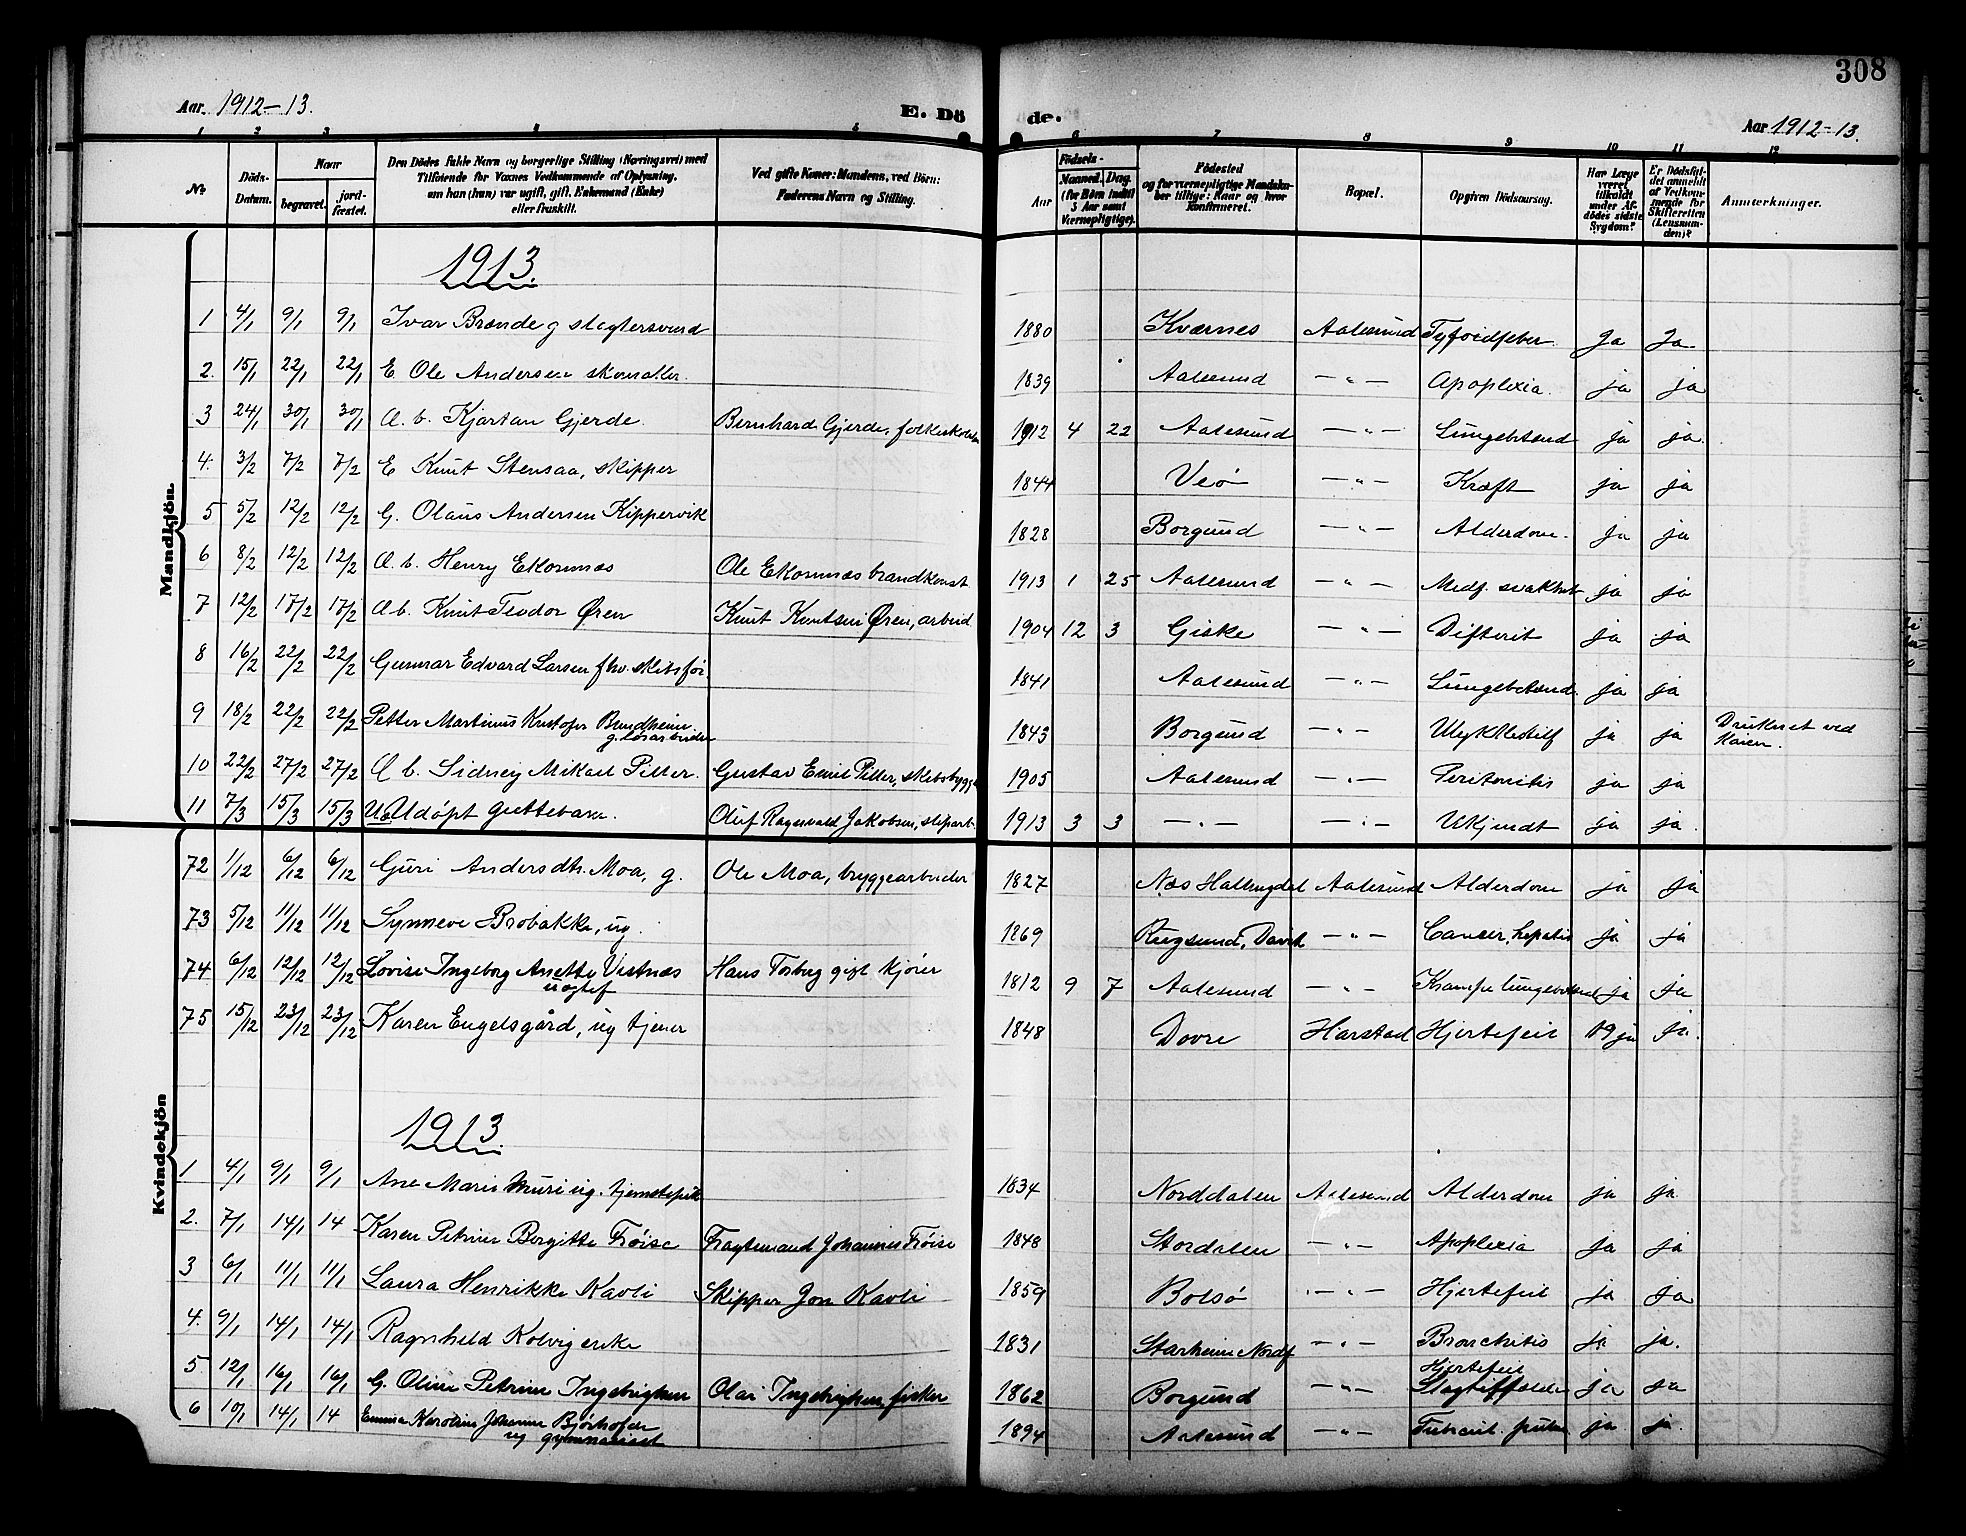 308
Aar. 1912-13.
E. Dö
de.
Aar 1912-13.
1 2 3 4 5 6 7 8 9 10 11 12
No
Döds-Datum.
Naar
begravet.
jord-fæstet.
Den Dödes fulde Navn og borgerlige Stilling (Næringsvei) med
Tilföiende for Voxnes Vedkommende af Oplysning,
om han (hun) var ugift, gift, Enkemand (Enke)
eller fraskilt.
Ved gifte Koner: Mandens, ved Börn:
Faderens Navn og Stilling.
Födsels-
Aar
Maaned. Dag.
(for Börn indtil
5 Aar samt
Værnepligtige).
Födested
og for værnepligtige Mandska-
ber tillige: Naar og hvor
konfirmeret.
Bopæl.
Opgiven Dödsaarsag.
Har Læge
været
tilkaldt
under Af-
dödes sidste
Sygdom?
Er Dödsfal-
det anmeldt
af Vedkom-
mende for
Skifteretten
(Lensman-
den)?
Anmærkninger.
Mandkjön.
1913.
1 4/1 9/1 9/1 Ivar Brænde g slagtersvend 1880 Kværnes Aalesund Tyfoidfeber Ja Ja
2. 15/1 22/1 22/1 E Ole Andersen skomaker. 1839 Aalesund —„— Apoplexia. ja ja
3 24/1 30/1 30/1 A. b. Kjartan Gjerde. Bernhard Gjerde, 1912 4 22 Aalesund —„— Lungebetænd ja ja.
4. 3/2 7/2 7/2 E Knut Stensaa, skipper 1844 Veö —„— Kræft ja ja
5 5/2 12/2 12/2 G. Olaus Andersen Kippervik 1828 Borgund —„— Alderdom. ja ja
6 8/2 12/2 12/2 A. b. Henry Ekornnæs Ole Ekornnæs brandkonst 1913 1 25 Aalesund —„— Medf. svakhet ja ja
7 12/2 17/2 17/2 A b. Knut Teodor Øren Knut Knutsen Øren, arbeid. 1904 12 3 Giske —„— Difterit ja ja
8 16/2 22/2 22/2 Gunnar Edvard Larsen fhv. skibsför 1841 Aalesund —„— Lungebetænd. ja ja
9 18/2 22/2 22/2 Petter Martinus Kristofer Bundheim
g. løsarbeider 1843 Borgund —„— Ulykkestilf ja ja Druknet ved
Kaien.
10 22/2 27/2 27/2 A b. Sidney Mikael Pilter. Gustav Emil Pilter, skibsbygg 1905 Aalesund —„— Peritonitis ja ja
11 7/3 15/3 15/3 Udøpt guttebarn. Oluf Ragnvald Jakobsen, sliparb. 1913 3 3 —„— —„— Ukjendt ja ja.
Kvindekjön
72 1/12 6/12 6/12 Guri Andersdtr. Moa, g. Ole Moa, bryggearbeider 1827 Næs Hallingdal Aalesund Alderdom ja ja
73 5/12 11/12 11/12 Synneve Brobakke, ug. 1869 Rugsund, Davik —„— Cancer, hepatis ja ja
74 6/12 12/12 12/12 Lovise Ingeborg Anette Vestnæs
uegtef Hans Torberg gift kjörer 1812 9 7 Aalesund —„— Krampe lungebetænd ja ja
75 15/12 23/12 23/12 Karen Engelsgård, ug tjener 1848 Dovre Harstad Hjertefeil ja ja.
1913.
1 4/1 9/1 9/1 Ane Marie Muri ug. tjenestepik 1834 Norddalen Aalesund Alderdom ja ja.
2. 7/1 14/1 14 Karen Petrine Bergitte Fröise Fragtemand Johannes Fröise 1848 Stordalen —„— Apoplexia ja ja
3 6/1 11/1 11/1 Laura Henrikke Kavli Skipper Jon Kavli 1859 Bolsø —„— Hjertefeil ja ja
4. 9/1 14/1 14/1 Ragnhild Kolvig enke 1831 Starheim Nordf —„— Bronchitis ja ja.
5 12/1 16/1 16/1 G. Oline Petrine Ingebrigtsen Olai Ingebrigtsen, fisker 1862 Borgund —„— Hjertefeil
Slagtilfælde ja ja
6 10/1 14/1 14 Emma Karoline Johanne Bjørkhofde
ug gymnasiast 1894 Aalesund —„— Tuberkul. pulm ja ja.